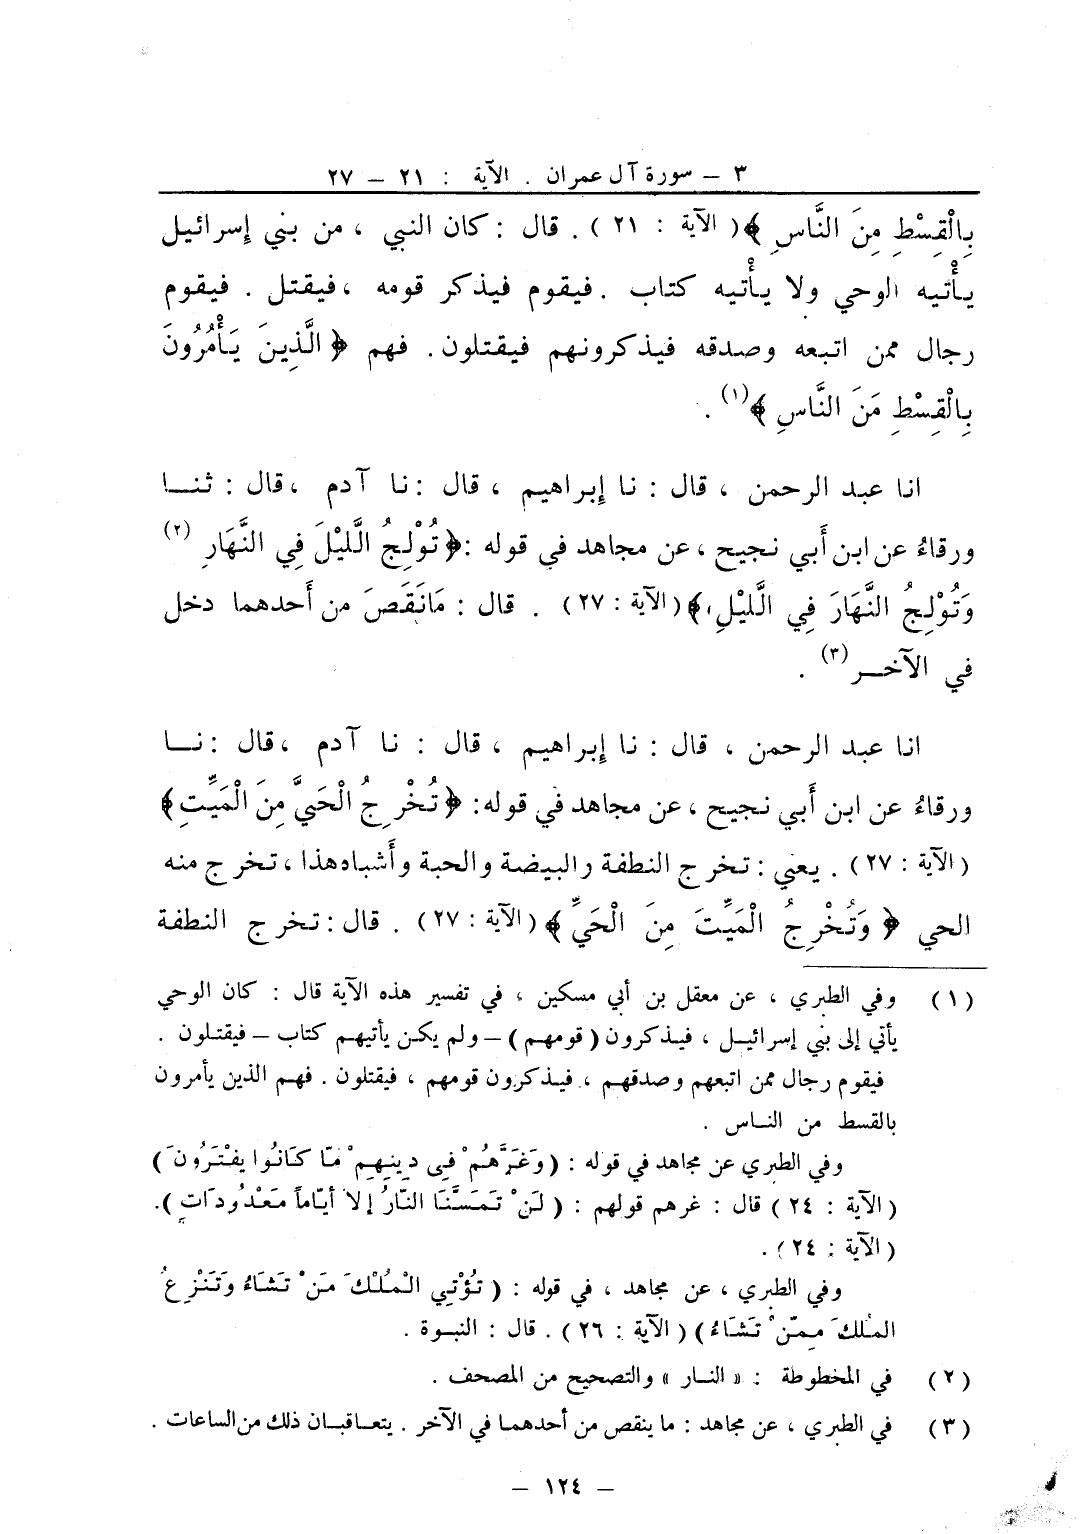 ٣ – سورة آل عمران . الآية : ٢١ – ٢٧
بِالْقِسْطِ مِنَ النَّاسِ ﴾ ( الآية : ٢١ ) . قال : كان النبي ، من بني إسرائيل
يأْتيه الوحي ولا يأْتيه كتاب . فيقوم فيذكر قومه ، فيقتل . فيقوم
رجال ممن اتبعه وصدقه فيذكرونهم فيقتلون . فهم ﴿ الَّذِينَ يَأْمُرُونَ
بِالْقِسْطِ مَنَ النَّاسِ ﴾(١) .
انا عبد الرحمن ، قال : نا إبراهيم ، قال : نا آدم ، قال : ثنا
ورقاءُ عن ابن أَبي نجيح ، عن مجاهد في قوله : ﴿ تُوْلِجُ الَّليْلَ فِي النَّهَارِ (٢)
وَتُوْلِجُ النَّهَارَ فِي الَّليْلِ ﴾ ( الآية : ٢٧ ) . قال : مَانَقَصَ من أَحدهما دخل
في الآخر (٣) .
انا عبد الرحمن ، قال : نا إبراهيم ، قال : نا آدم ، قال : نا
ورقاءُ عن ابن أَبي نجيح ، عن مجاهد في قوله : ﴿ تُخْرِجُ الْحَيَّ مِنَ الْمَيِّتِ ﴾
( الآية : ٢٧ ) . يعني : تخرج النطفة والبيضة والحبة وأَشباه هذا ، تخرج منه
الحي ﴿ وَتُخْرِجُ الْمَيِّتَ مِنَ الْحَيِّ ﴾ ( الآية : ٢٧ ) . قال : تخرج النطفة
( ١ ) وفي الطبري ، عن معقل بن أبي مسكين ، في تفسير هذه الآية قال : كان الوحي
يأتي إلى بني إسرائيل ، فيذكرون ( قومهم ) – ولم يكن يأتيهم كتاب – فيقتلون .
فيقوم رجال ممن اتبعهم وصدقهم ، فيذكرون قومهم ، فيقتلون . فهم الذين يأمرون
بالقسط من الناس .
وفي الطبري عن مجاهد في قوله : ( وَغَرَّهُمْ فِي دِينِهِمْ مَّا كَانُوا يَفْتَرُونَ )
( الآية : ٢٤ ) قال : غرهم قولهم : ( لَنْ تَمَسَّنَا النَّارُ إلاّ أيّاماً مَعْدُودَاتٍ ) .
( الآية : ٢٤ ) .
وفي الطبري ، عن مجاهد ، في قوله : ( تُؤْتِي الْمُلْكَ مَنْ تَشَاءُ وَتَنْزِعُ
المُلكَ مِمّنْ تَشَاءُ ) ( الآية : ٢٦ ) . قال : النبوة .
( ٢ ) في المخطوطة : « النار » والتصحيح من المصحف .
( ٣ ) في الطبري ، عن مجاهد : ما ينقص من أحدهما في الآخر . يتعاقبان ذلك من الساعات .
– ١٢٤ –